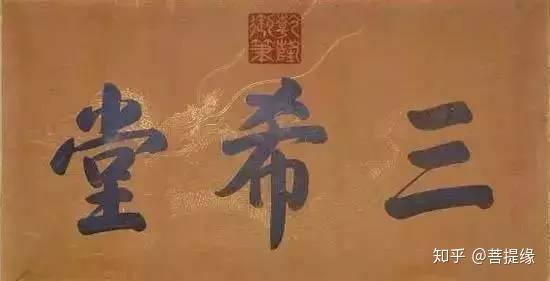 乾隆御筆
三希堂
知乎 @菩提缘